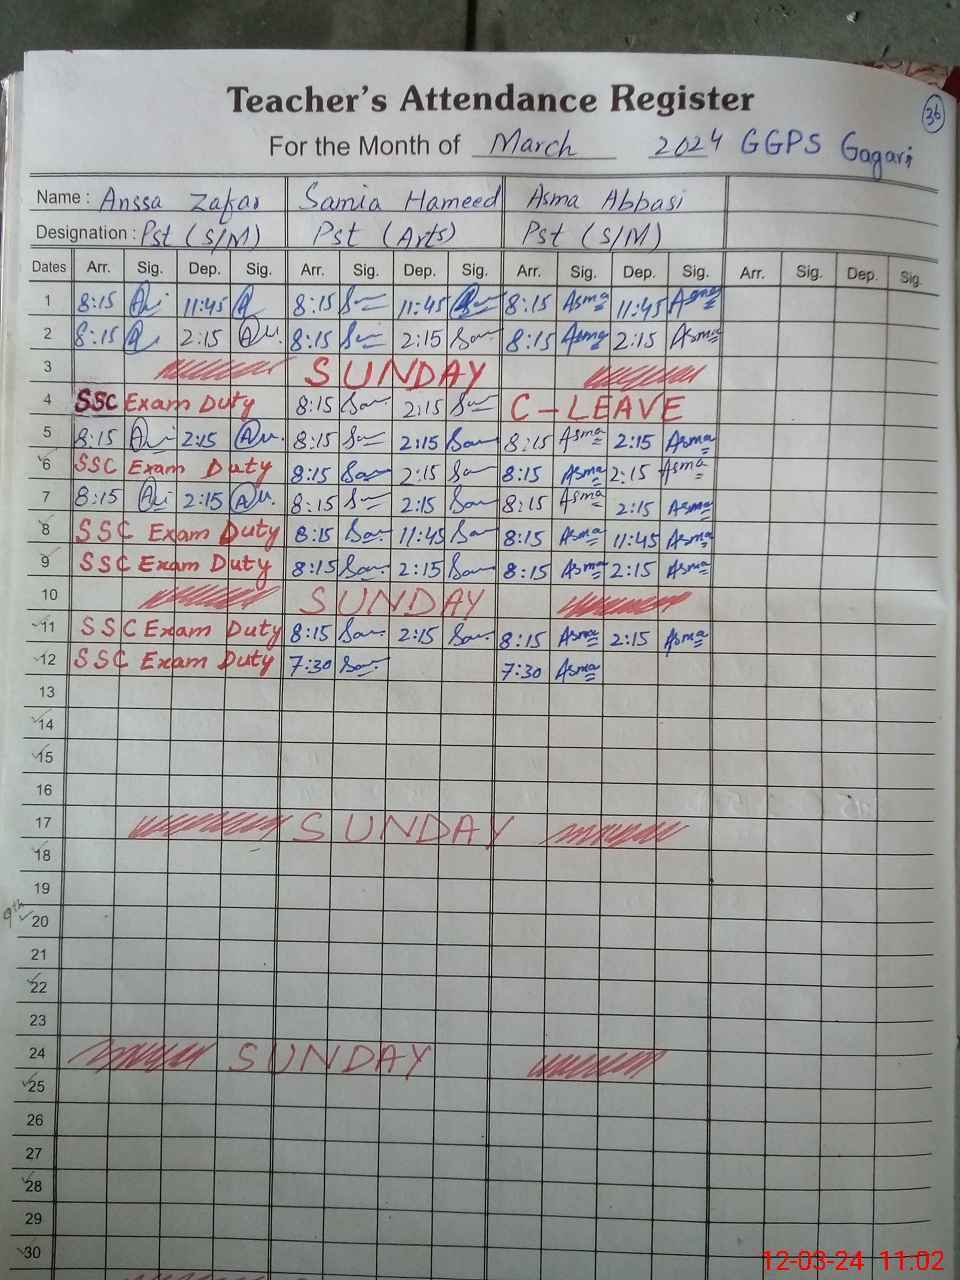 36
Teacher's Attendance Register
For the Month of March 2024 GGPS Gagari
Name : Anssa Zafar Samia Hameed Asma Abbasi
Designation : Pst (S/M) Pst (Arts) Pst (S/M)
Dates Arr. Sig. Dep. Sig. Arr. Sig. Dep. Sig. Arr. Sig. Dep. Sig. Arr. Sig. Dep. Sig.
1 8:15 11:45 8:15 11:45 8:15 Asma 11:45 Asma
2 8:15 2:15 8:15 2:15 8:15 Asma 2:15 Asma
3 SUNDAY
4 SSC Exam Duty 8:15 2:15 C-LEAVE
5 8:15 2:15 8:15 2:15 8:15 Asma 2:15 Asma
6 SSC Exam Duty 8:15 2:15 8:15 Asma 2:15 Asma
7 8:15 2:15 8:15 2:15 8:15 Asma 2:15 Asma
8 SSC Exam Duty 8:15 11:45 8:15 Asma 11:45 Asma
9 SSC Exam Duty 8:15 2:15 8:15 Asma 2:15 Asma
10 SUNDAY
11 SSC Exam Duty 8:15 2:15 8:15 Asma 2:15 Asma
12 SSC Exam Duty 7:30 7:30 Asma
13
14
15
16
17 SUNDAY
18
19
9th
20
21
22
23
24 SUNDAY
25
26
27
28
29
30
12-03-24 11:02